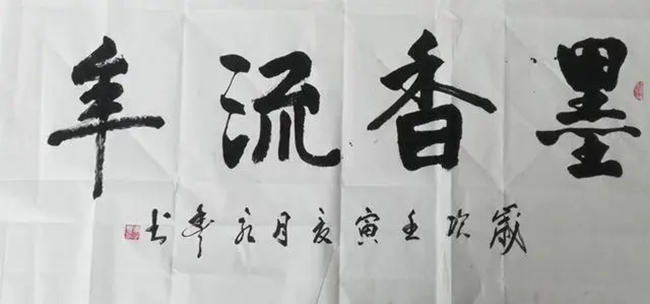 墨香流年
歲次壬寅夏月书